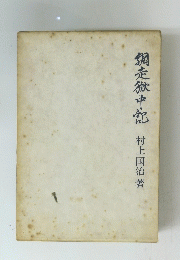 網走獄中記
村上国治著